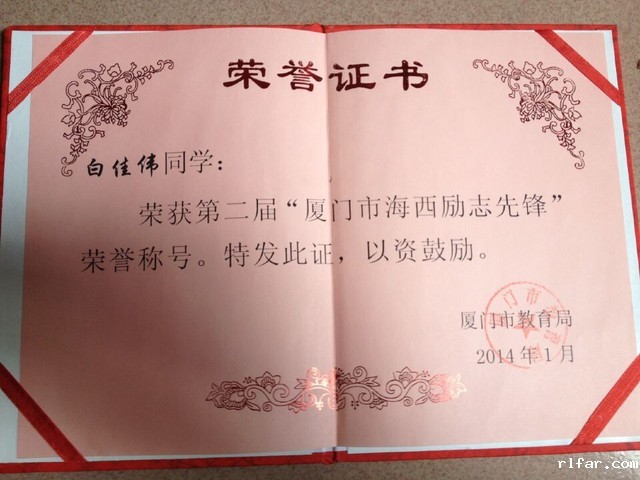 荣誉证书
白佳伟同学：
荣获第二届“厦门市海西励志先锋”
荣誉称号。特发此证，以资鼓励。
厦门市教育局
2014年1月
rlfar.com